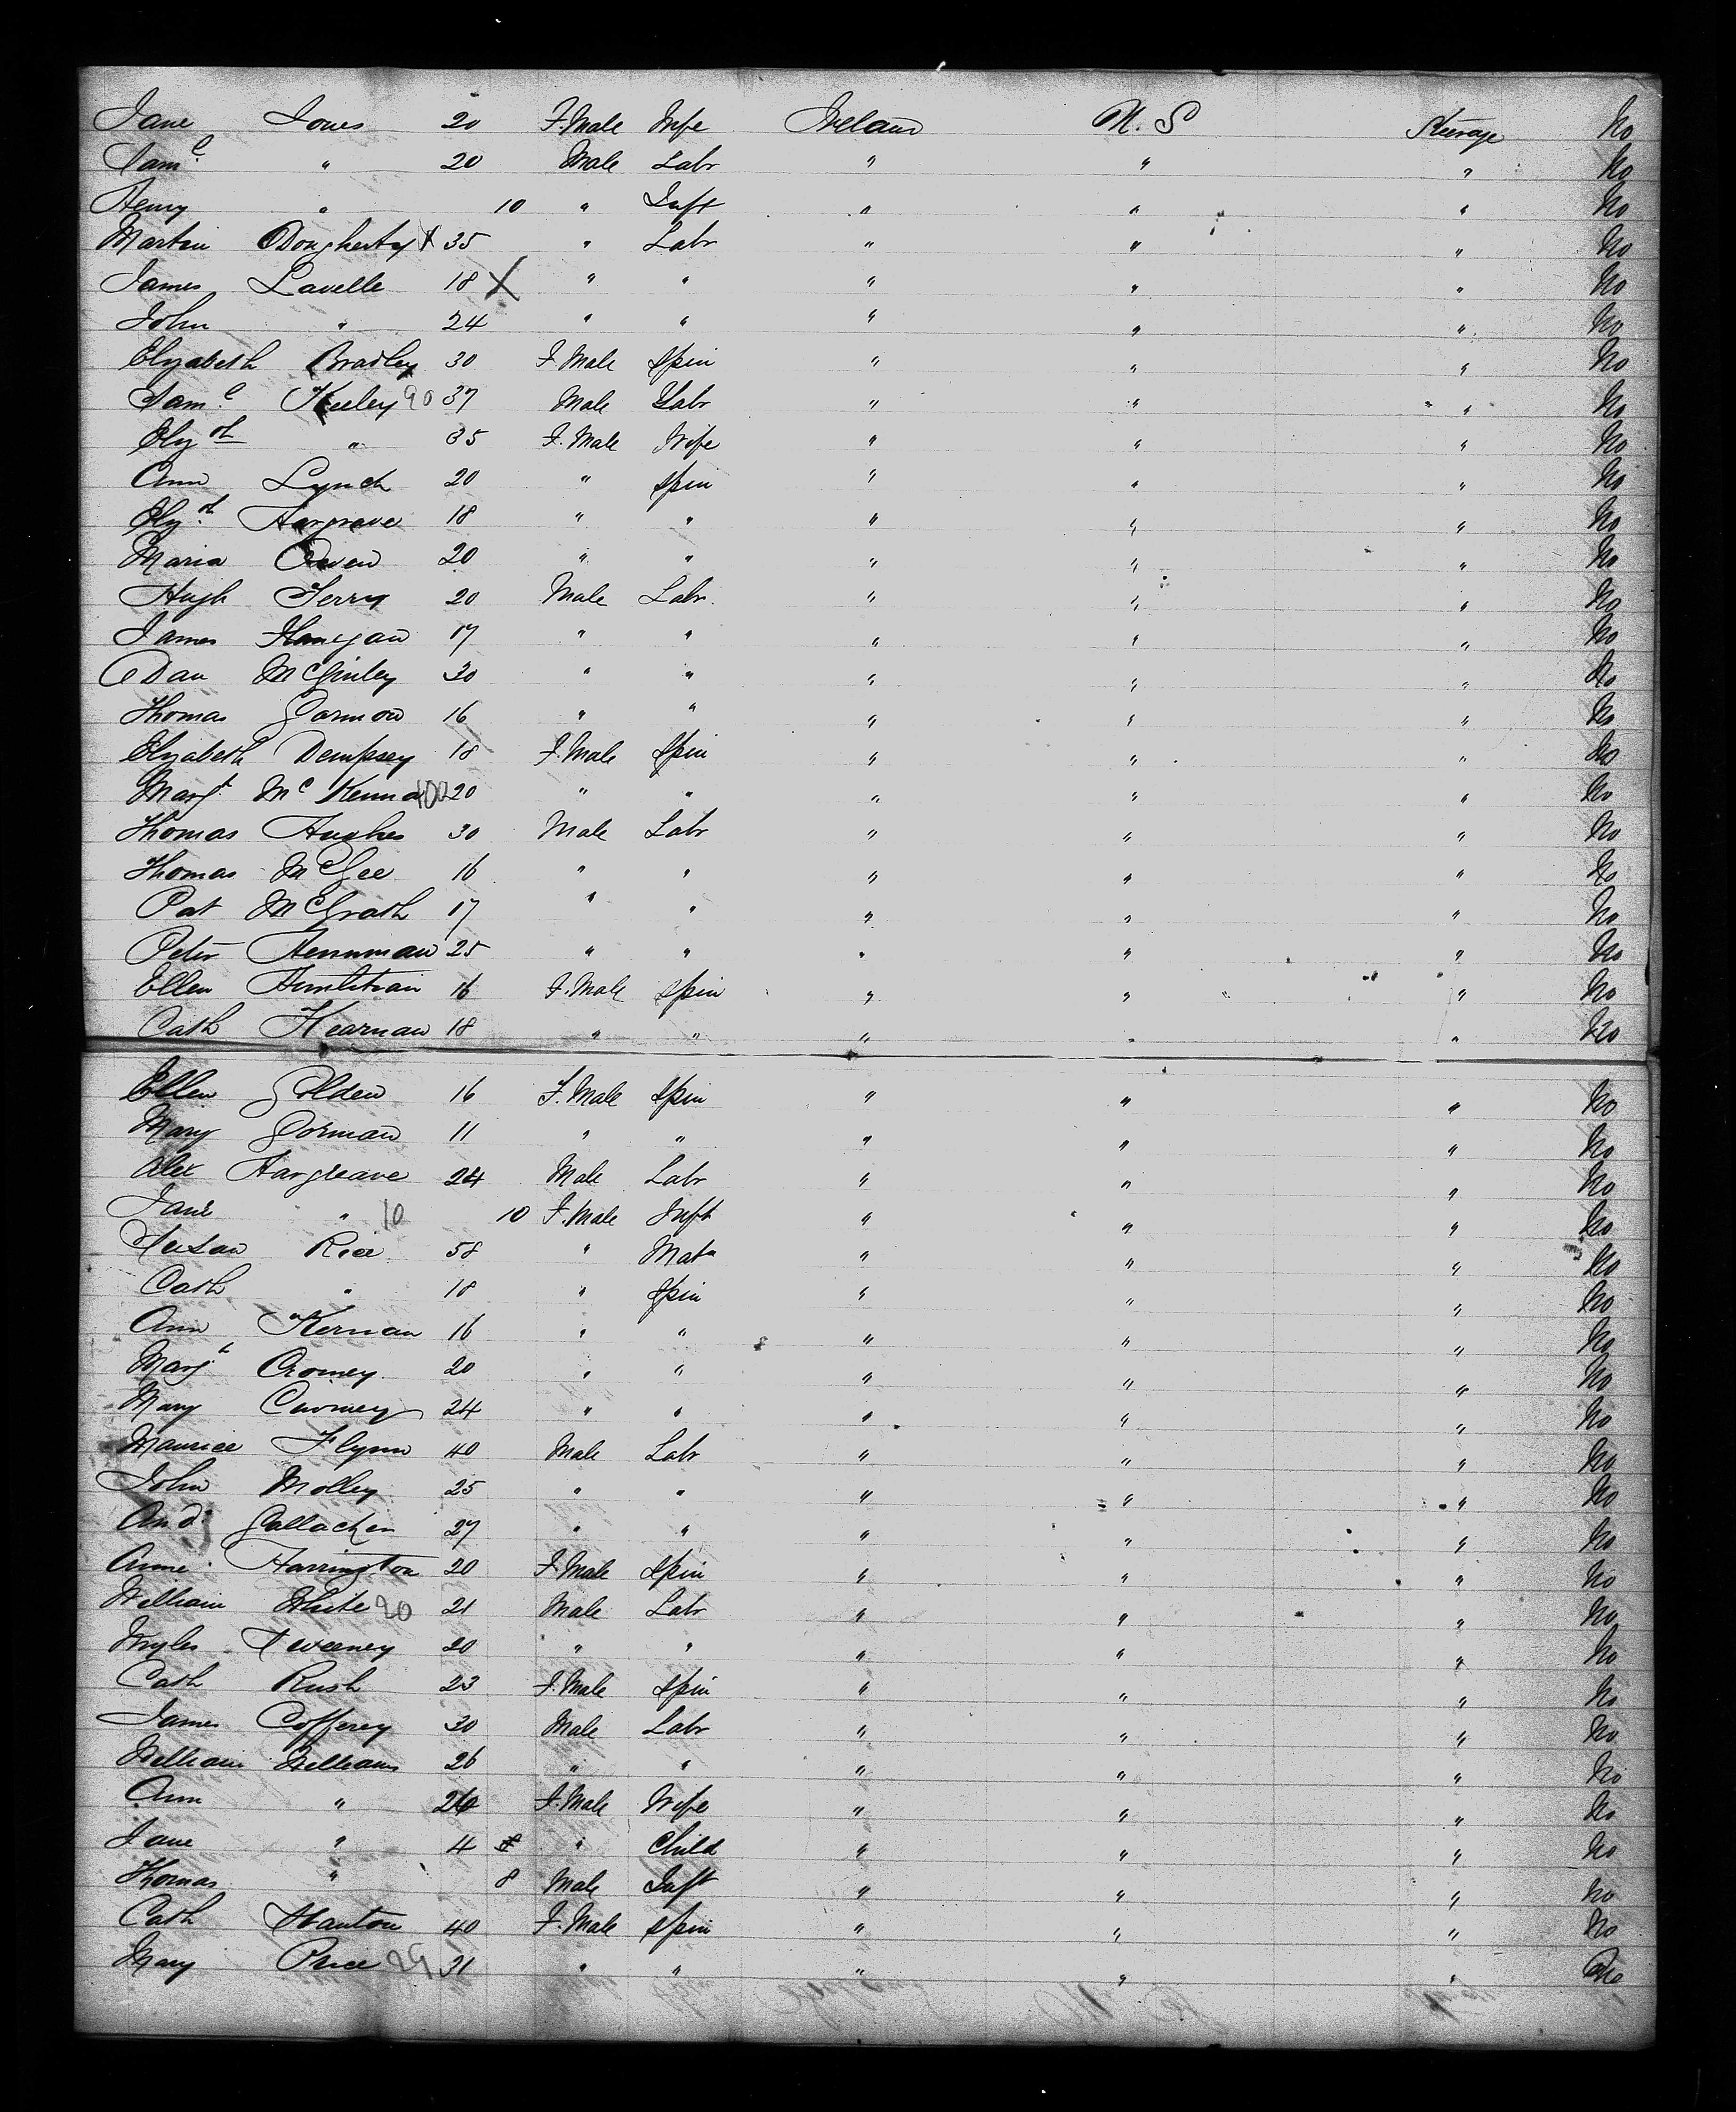 Jane Jones 20 F.Male Wife Ireland U.S Steerage No
Saml " 20 Male Labr " " " No
Henry " 10 " Inft " " " No
Martin Dougherty X 35 " Labr " " " No
James Lavelle 18 X " " " " " No
John " 24 " " " " " No
Elizabeth Bradley 30 F.Male Spin " " " No
Saml Keeley 90 37 Male Labr " " " No
Elizth " 35 F.Male Wife " " " No
Ann Lynch 20 " Spin " " " No
Elizth Hargrave 18 " " " " " No
Maria Owen 20 " " " " " No
Hugh Terry 20 Male Labr " " " No
James Flanegan 17 " " " " " No
Dan McGinley 30 " " " " " No
Thomas 16 " " " " " No
Elizabeth Dempsey 18 F.Male Spin " " " No
Margt McKenna 100 20 " " " " " No
Thomas Hughes 30 Male Labr " " " No
Thomas McGee 16 " " " " " No
Pat McGrath 17 " " " " " No
Peter 25 " " " " " No
Ellen 16 F.Male Spin " " " No
Cath Kearnan 18 " " " " " No
Ellen Golden 16 F.Male Spin " " " No
Mary Gorman 11 " " " " " No
Alex Hargreave 24 Male Labr " " " No
Jane " 10 10 F.Male Inft " " " No
Susan Rice 58 " Matn " " " No
Cath " 18 " Spin " " " No
Ann Kernan 16 " " " " " No
Margt Cromey 20 " " " " " No
Mary 24 " " " " " No
Maurice Flynn 40 Male Labr " " " No
John Molley 25 " " " " " No
And Gallacher 27 " " " " " No
Anne Harrington 20 F.Male Spin " " " No
William White 20 21 Male Labr " " " No
Myles Sweeney 20 " " " " " No
Cath Rush 23 F.Male Spin " " " No
James Cofferey 30 Male Labr " " " No
William Williams 26 " " " " " No
Ann " 26 F.Male Wife " " " No
Jane " 4 " Child " " " No
Thomas " 8 Male Inft " " " No
Cath Stanton 40 F.Male Spin " " " No
Mary Price 29 31 " " " " " No